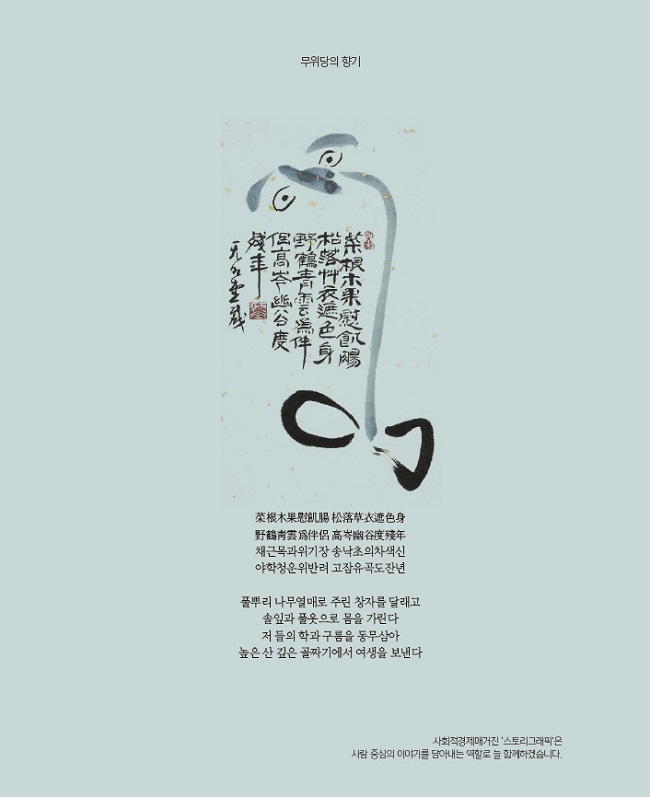 무위당의 향기
菜根木果慰飢腸
松落艸衣遮色身
野鶴青雲為伴
侶高岑幽谷度
殘年
菜根木果慰飢腸 松落草衣遮色身
野鶴靑雲爲伴侶 高岑幽谷度殘年
채근목과위기장 송낙초의차색신
야학청운위반려 고잠유곡도잔년
풀뿌리 나무열매로 주린 창자를 달래고
솔잎과 풀옷으로 몸을 가린다
저 들의 학과 구름을 동무삼아
높은 산 깊은 골짜기에서 여생을 보낸다
사회적경제매거진 '스토리그래픽'은
사람 중심의 이야기를 담아내는 역할로 늘 함께하겠습니다.